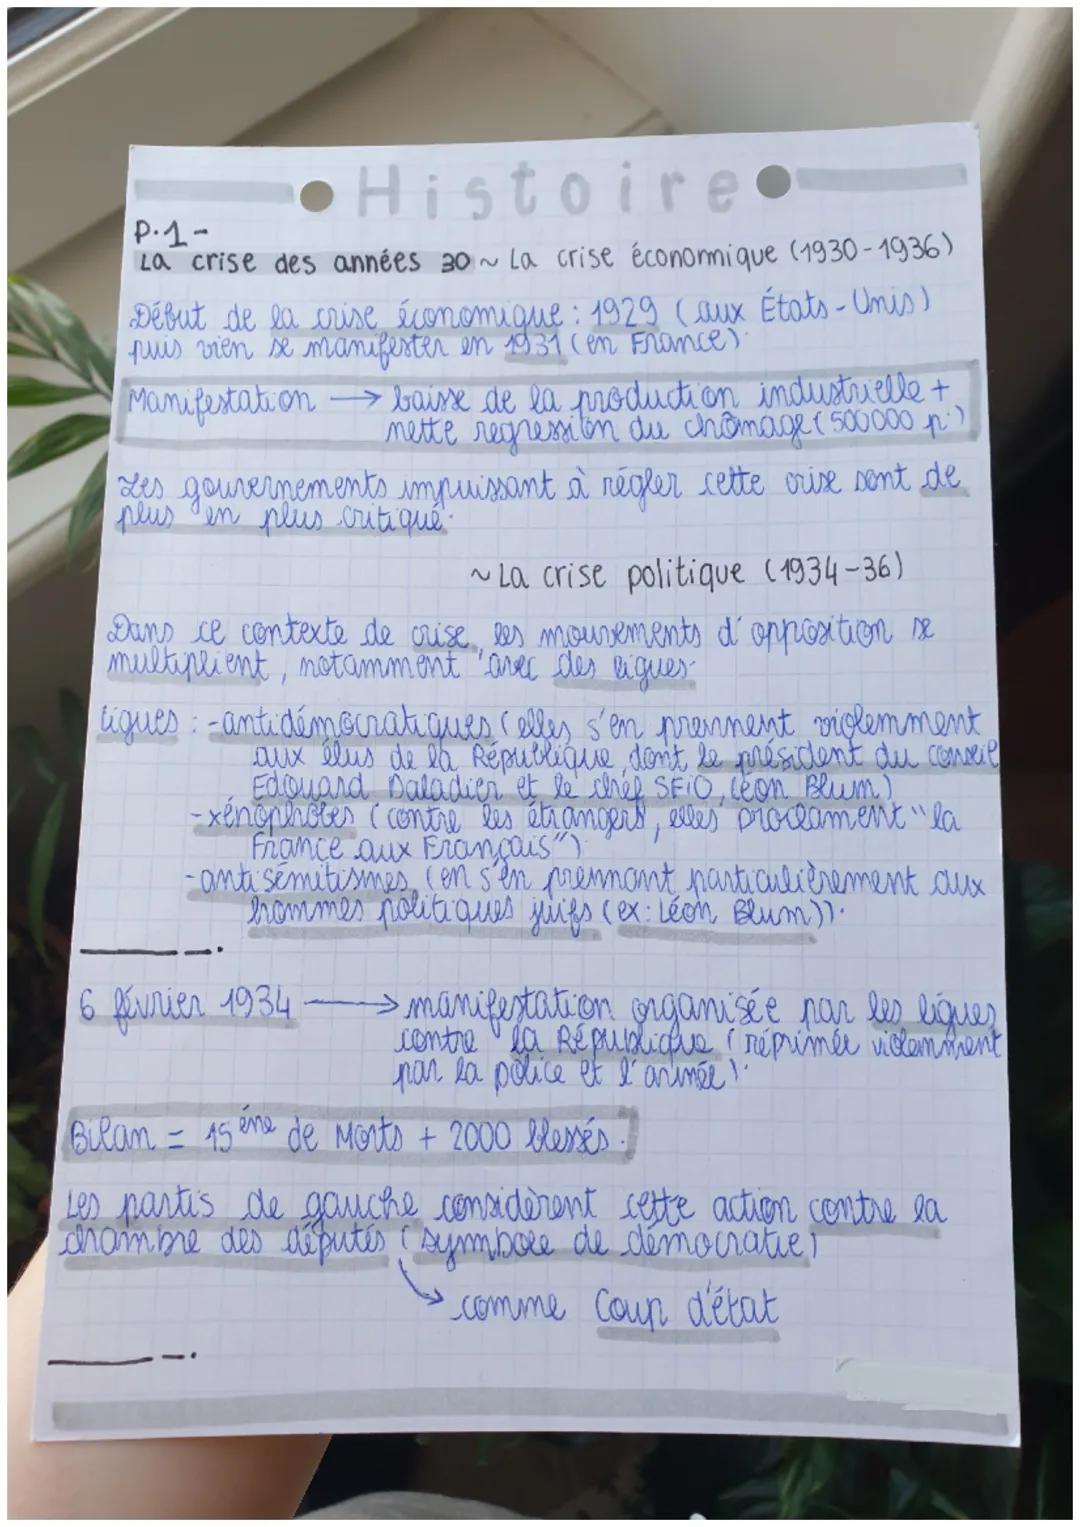 Histoire
P.1-
La crise des années 30 ~ La crise économique (1930-1936)
Début de la crise économique : 1929 (aux États-Unis)
puis vien se manifester en 1931 (en France).
Manifestation → baisse de la production industrielle +
nette regression du chômage (500000 p.)
Les gouvernements impuissant à régler cette crise sont de
plus en plus critiqué.
~ La crise politique (1934-36)
Dans ce contexte de crise, les mouvements d'opposition se
multiplient, notamment avec des ligues.
Ligues : -antidémocratiques (elles s'en prennent violemment
aux élus de la République dont le président du conseil
Edouard Daladier et le chef SFiO, Léon Blum)
-xénophobes (contre les étrangers, elles proclament "la
France aux Français").
-antisémitismes (en s'en prennant particulièrement aux
hommes politiques juifs (ex: Léon Blum)).
6 février 1934 → manifestation organisée par les ligues
contre la République (réprimée violemment
par la police et l'armée).
Bilan = 15 éne de Morts + 2000 blessés.
Les partis de gauche considèrent cette action contre la
chambre des députés (symbole de démocratie)
↳ comme Coup d'état